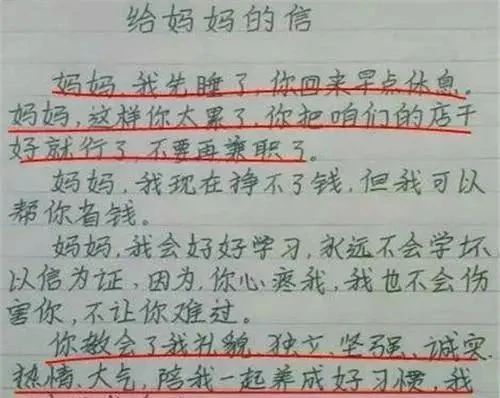 给妈妈的信
妈妈,我先睡了,你回来早点休息。
妈妈,这样你太累了,你把咱们的店干
好就行了,不要再兼职了。
妈妈,我现在挣不了钱,但我可以
帮你省钱。
妈妈,我会好好学习,永远不会学坏
以信为证,因为,你心疼我,我也不会伤
害你,不让你难过。
你教会了我礼貌、独立、坚强、诚实、
热情、大气,陪我一起养成好习惯,我